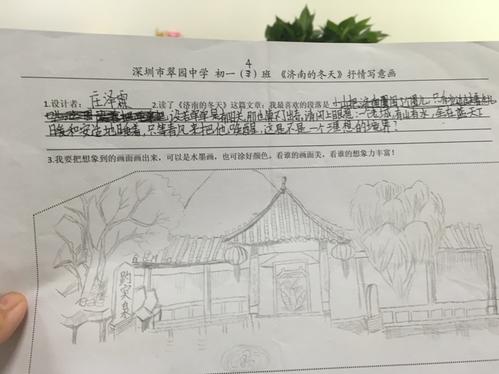 4
深圳市翠园中学 初一（3）班 《济南的冬天》抒情写意画
1.设计者：庄泽霖 2.读了《济南的冬天》这篇文章：我最喜欢的段落是 小山把济南围了个圈儿，只有
没有 阳光 着，有山有水，全在蓝天下
暖和安适地睡着，只等春风来把他们唤醒，这是不是一个理想的境界？
3.我要把想象到的画面画出来，可以是水墨画，也可涂好颜色，看谁的画面美，看谁的想象力丰富！
趵突泉